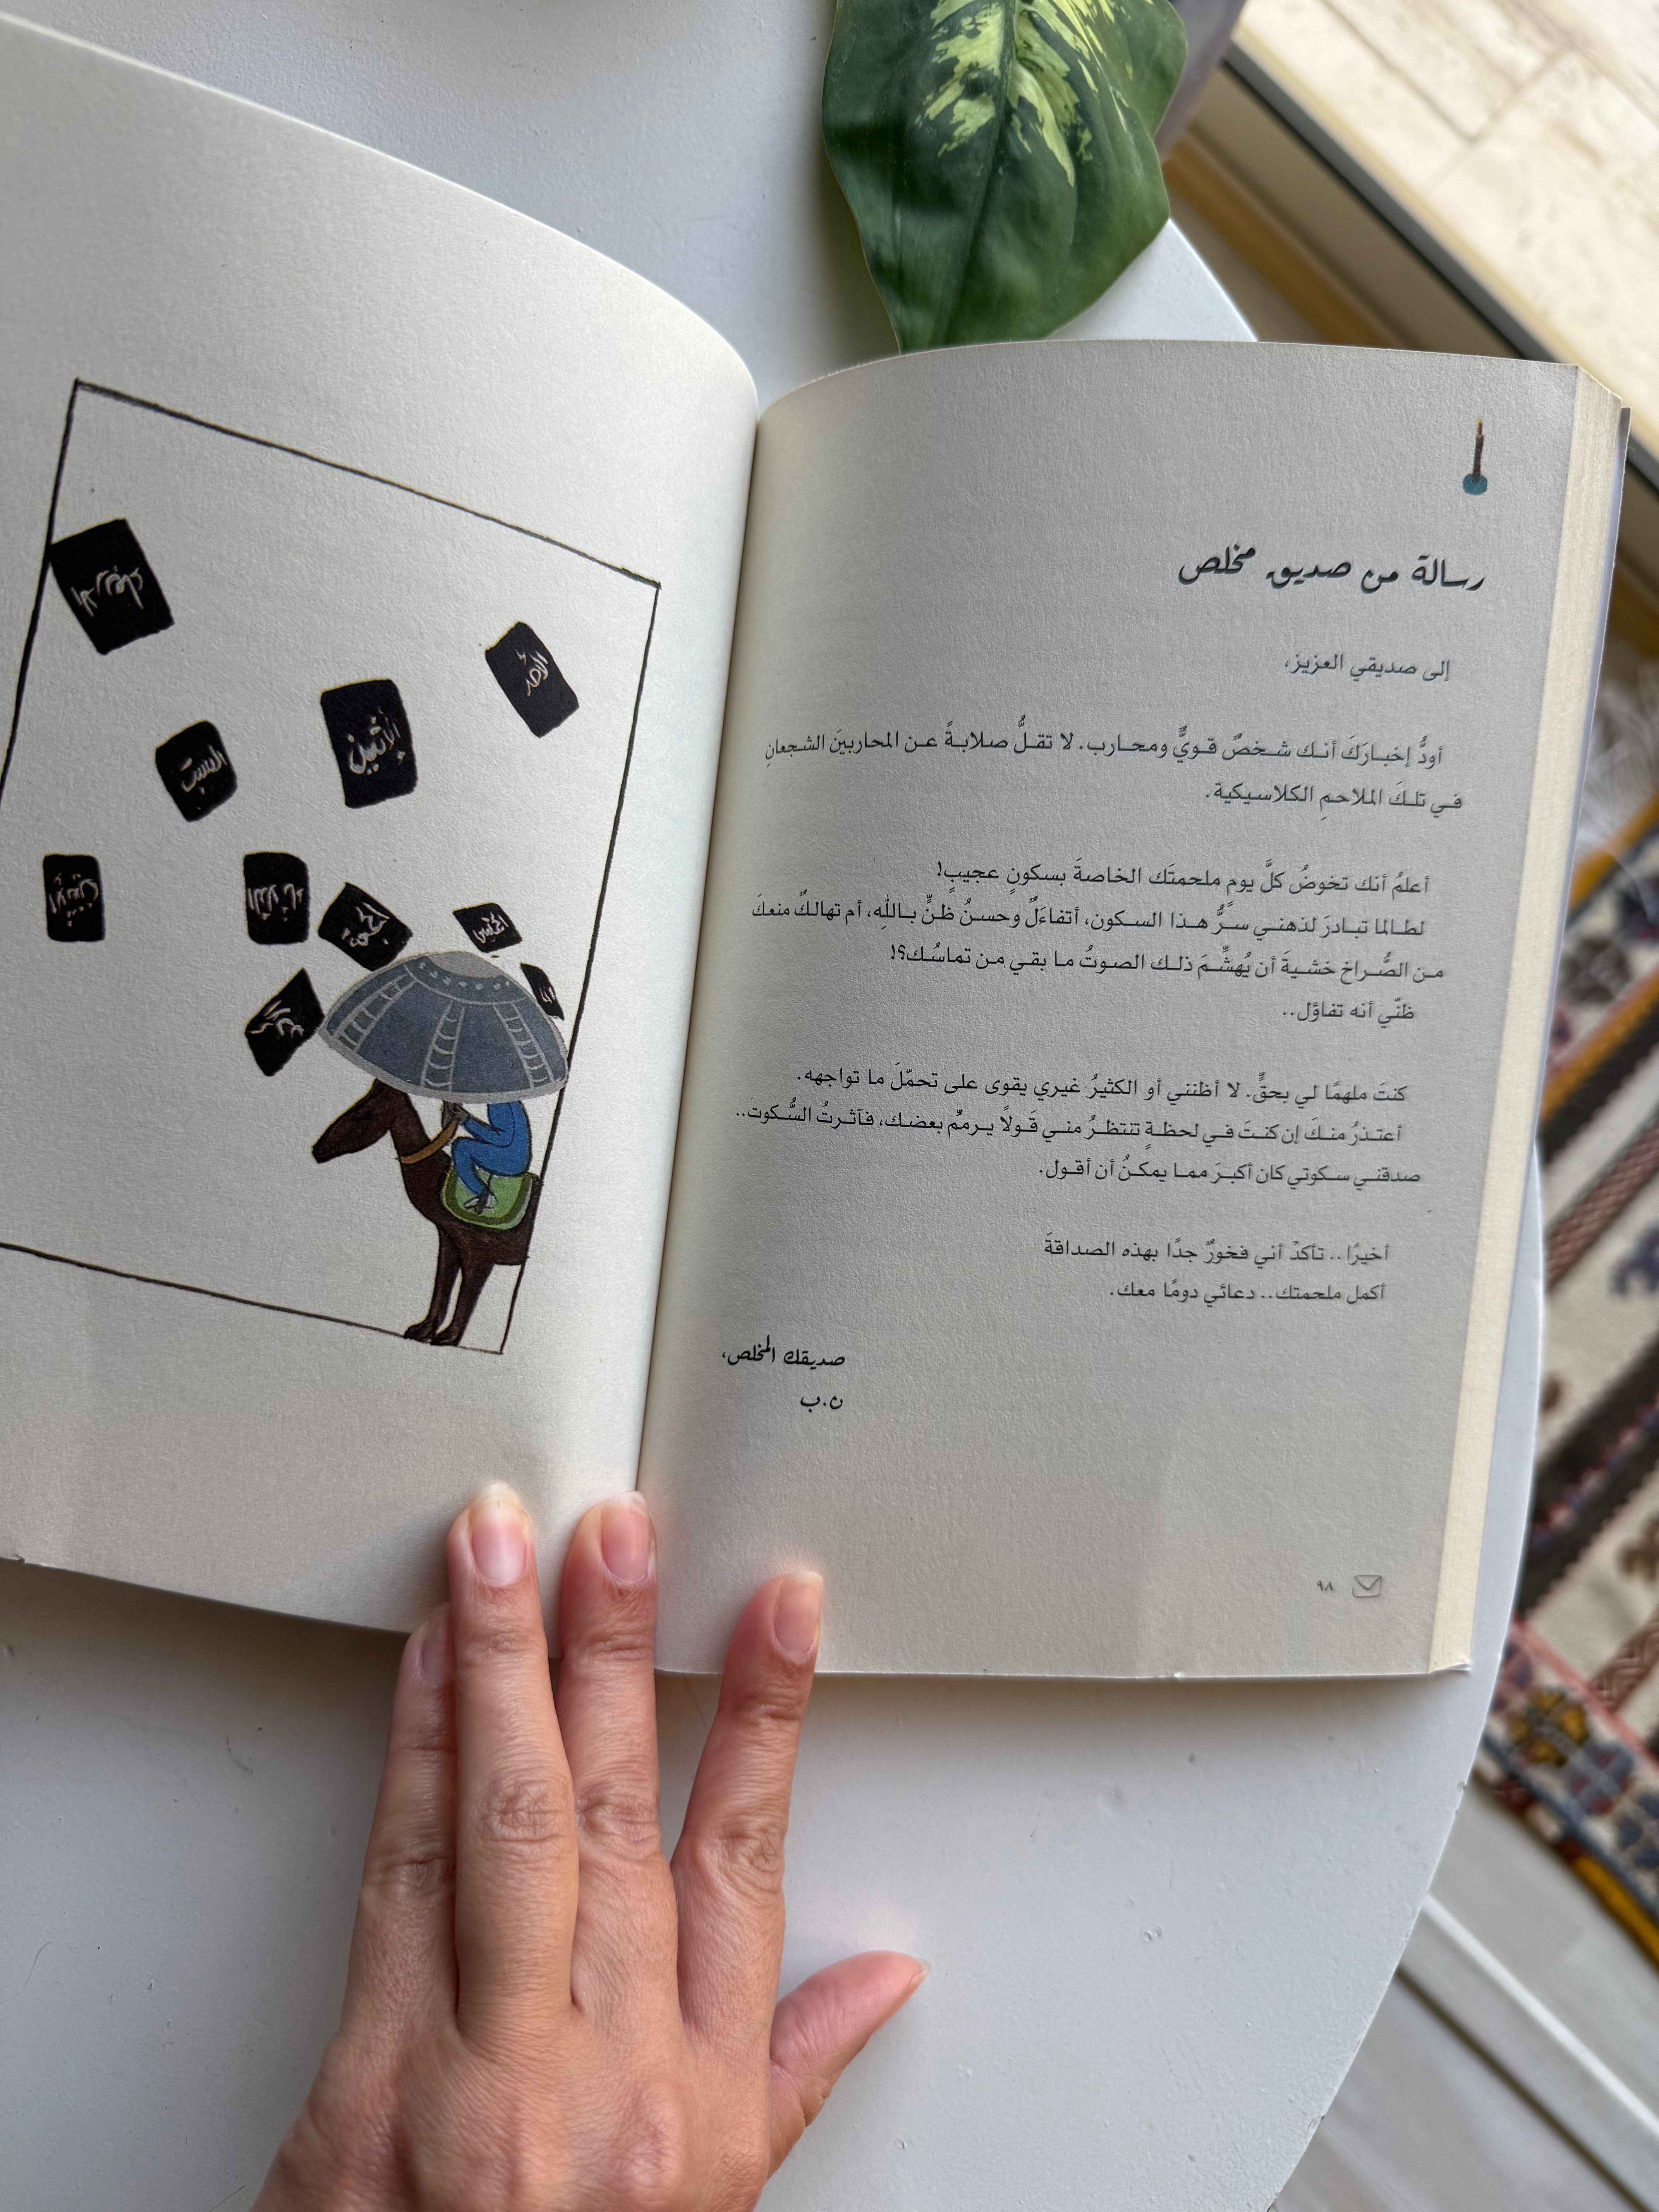 رسالة من صديق مخلص
إلى صديقي العزيز،
أودُّ إخبارَكَ أنك شخصٌ قويٌّ ومحارب. لا تقلُّ صلابةً عن المحاربينَ الشجعانِ
في تلكَ الملاحمِ الكلاسيكية.
أعلمُ أنك تخوضُ كلَّ يومٍ ملحمتَك الخاصةَ بسكونٍ عجيبٍ!
لطالما تبادرَ لذهني سرُّ هذا السكون، أتفاءَلٌ وحسنُ ظنٍّ باللهِ، أم تهالكٌ منعكَ
من الصُّراخ خشيةَ أن يُهشِّمَ ذلك الصوتُ ما بقي من تماسُك؟!
ظنّي أنه تفاؤل..
كنتَ ملهمًا لي بحقٍّ. لا أظنني أو الكثيرُ غيري يقوى على تحمّلَ ما تواجهه.
أعتذرُ منكَ إن كنتَ في لحظةٍ تنتظرُ مني قَولًا يرممُ بعضك، فآثرتُ السُّكوت..
صدقني سكوتي كان أكبرَ مما يمكنُ أن أقول.
أخيرًا.. تأكدْ أني فخورٌ جدًا بهذه الصداقةَ
أكمل ملحمتك.. دعائي دومًا معك.
صديقك المخلص،
ن.ب
٩٨
الأربعاء
الأحد
الإثنين
السبت
الإثنين
الثلاثاء
الجمعة
الخميس